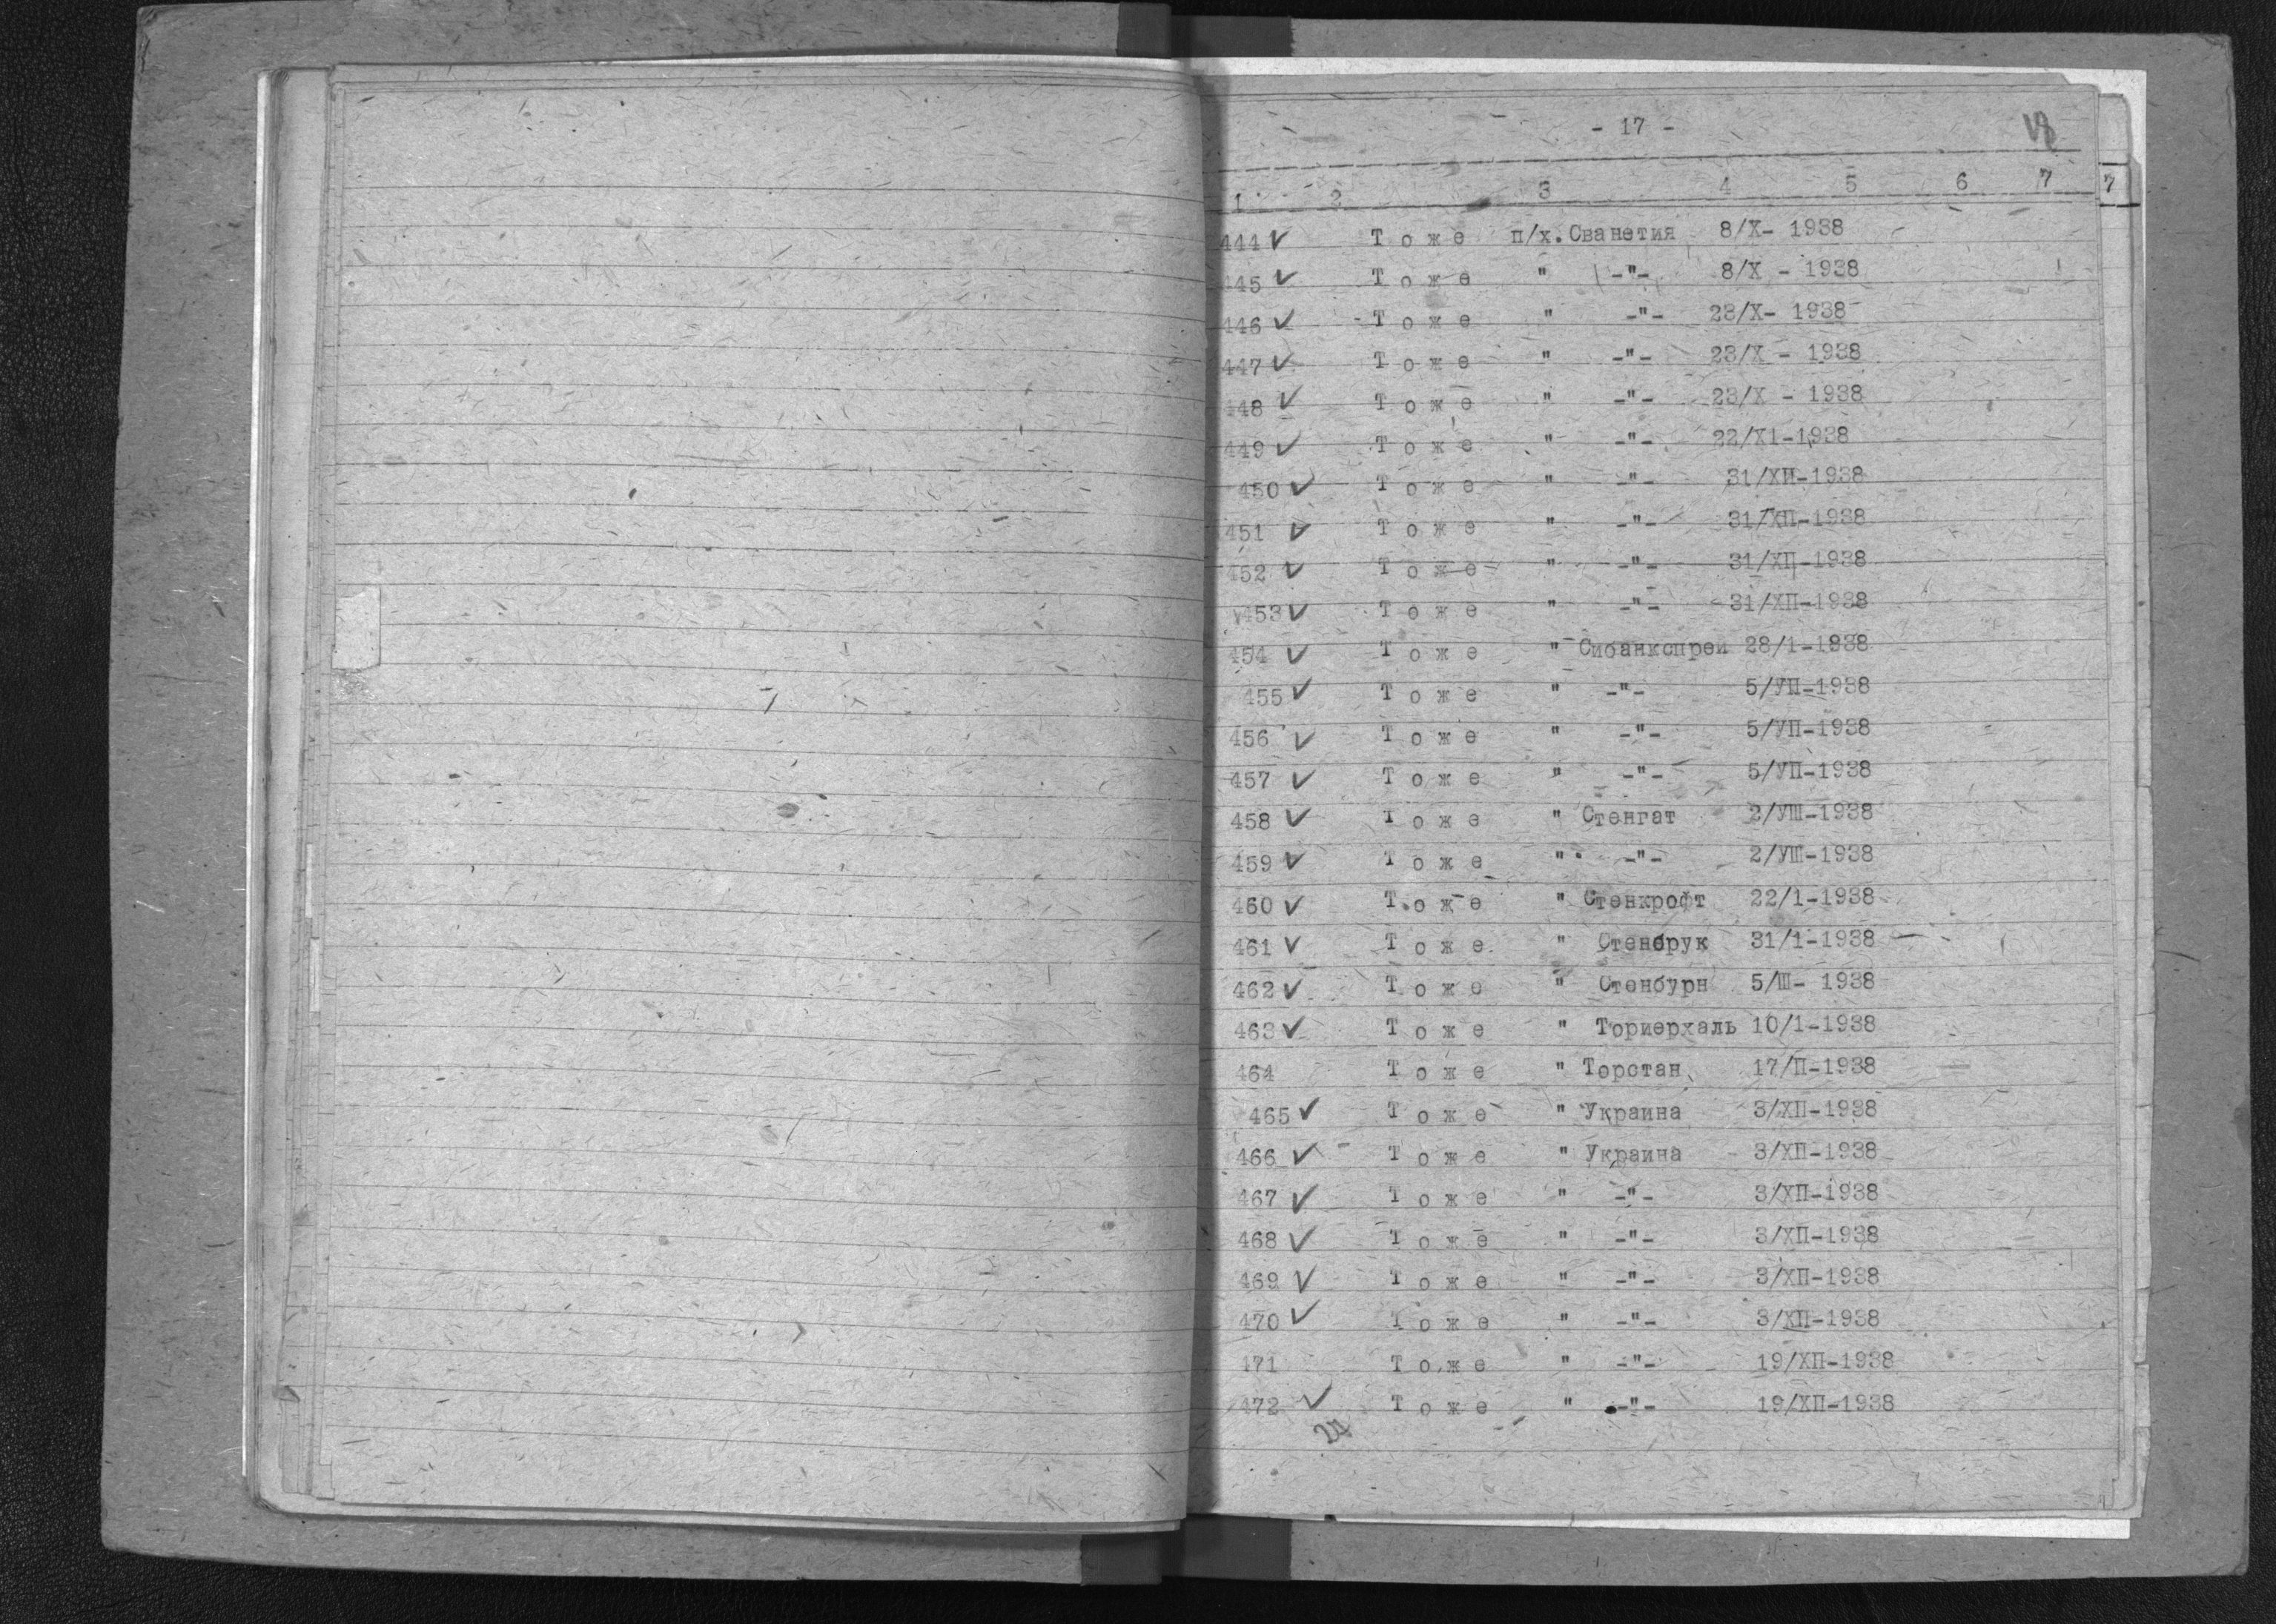 - 17 -
18
1 2 3 4 5 6 7 7
444 ✓ Тоже п/х. Сванетия 8/X- 1938
445 ✓ Тоже " -"- 8/X - 1938
446 ✓ Тоже " -"- 23/X- 1938
447 ✓ Тоже " -"- 23/X - 1938
448 ✓ Тоже " -"- 23/X - 1938
449 ✓ Тоже " -"- 22/X1-1938
450 ✓ Тоже " -"- 31/XП-1938
451 ✓ Тоже " -"- 31/XП-1938
452 ✓ Тоже " -"- 31/XП-1938
453 ✓ Тоже " -"- 31/XП-1938
454 ✓ Тоже " Сибанкспрей 28/1-1938
455 ✓ Тоже " -"- 5/УП-1938
456 ✓ Тоже " -"- 5/УП-1938
457 ✓ Тоже " -"- 5/УП-1938
458 ✓ Тоже " Стенгат 2/УШ-1938
459 ✓ Тоже " -"- 2/УШ-1938
460 ✓ Тоже " Стенкрофт 22/1-1938
461 ✓ Тоже " Стенбрук 31/1-1938
462 ✓ Тоже " Стенбурн 5/Ш- 1938
463 ✓ Тоже " Ториерхаль 10/1-1938
464 Тоже " Торстан 17/П-1938
465 ✓ Тоже " Украина 3/XП-1938
466 ✓ Тоже " Украина 3/XП-1938
467 ✓ Тоже " -"- 3/XП-1938
468 ✓ Тоже " -"- 3/XП-1938
469 ✓ Тоже " -"- 3/XП-1938
470 ✓ Тоже " -"- 3/XП-1938
471 Тоже " -"- 19/XП-1938
472 ✓ Тоже " -"- 19/XП-1938